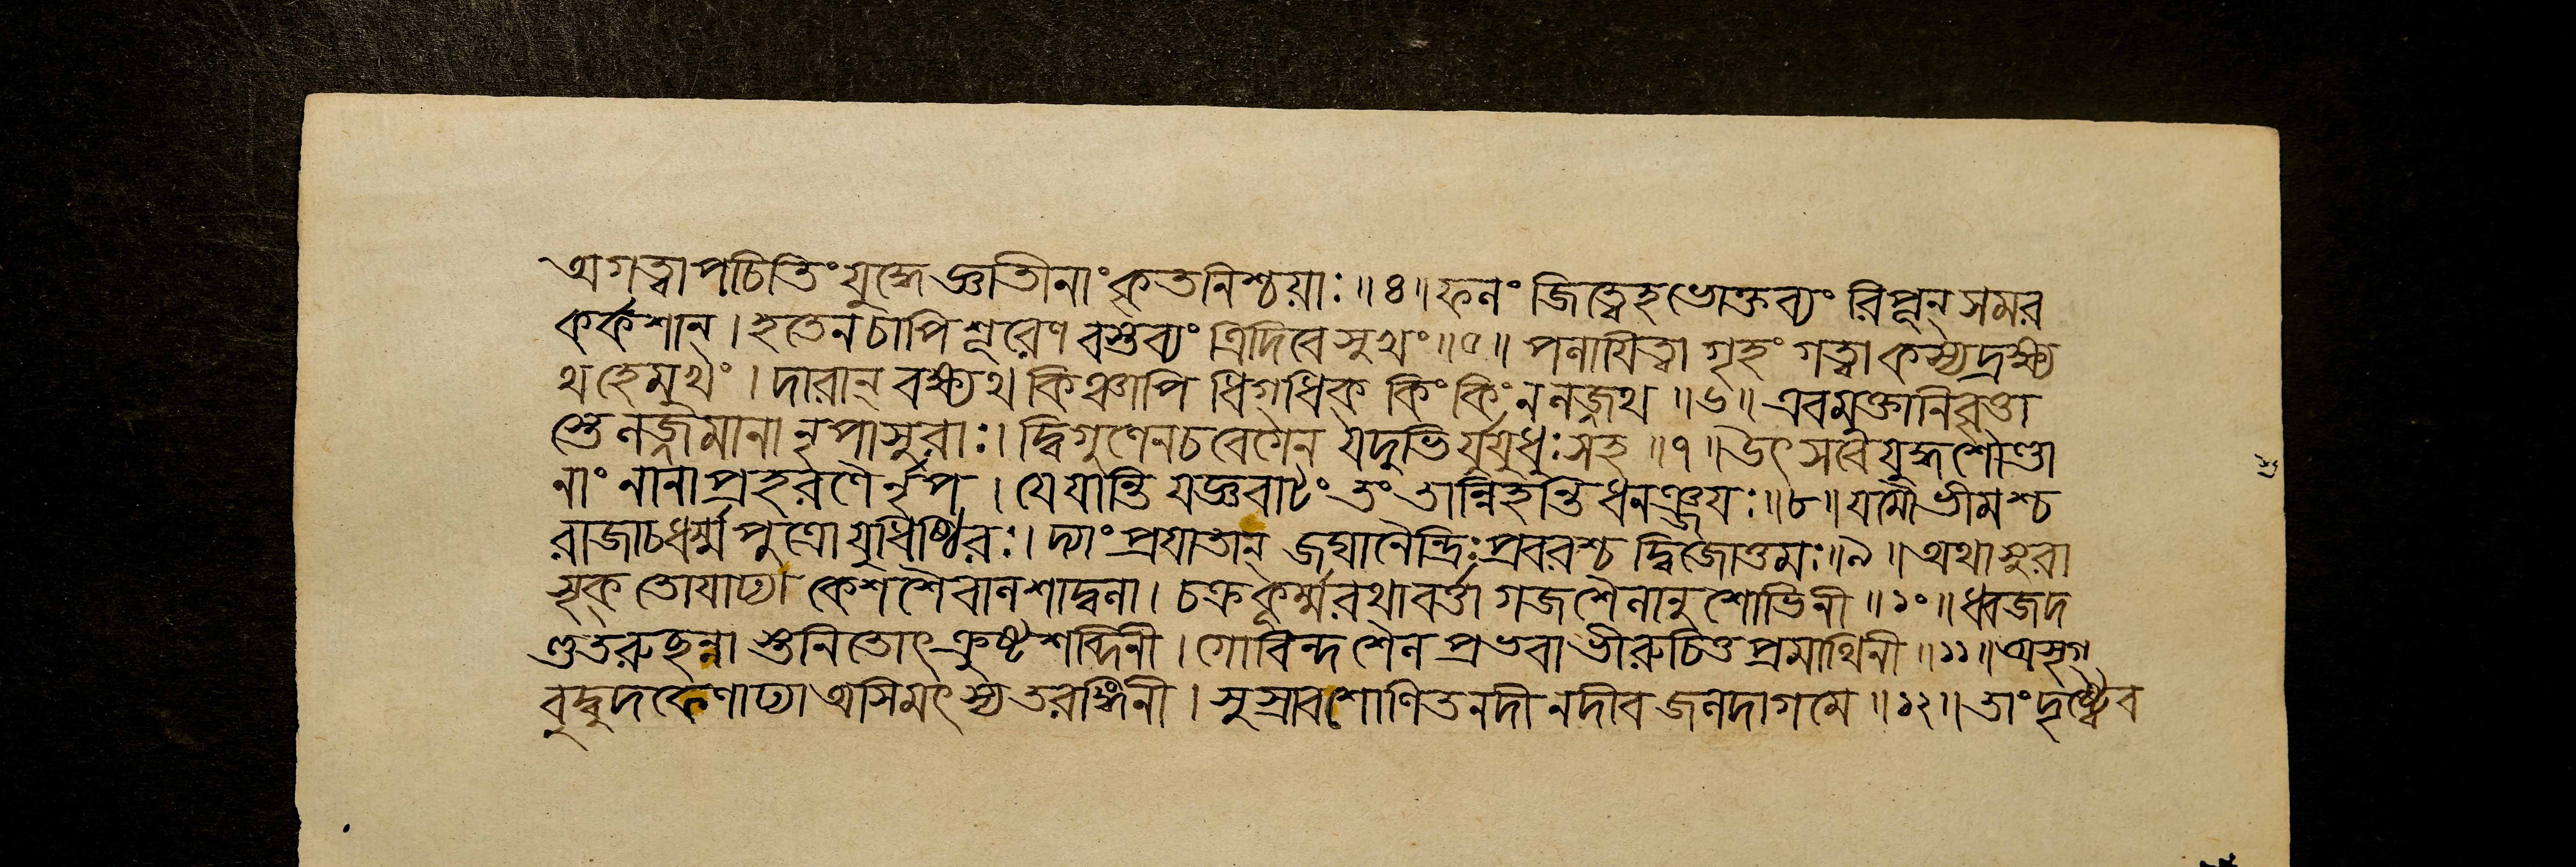 অগত্বাপচিতিং যুদ্ধে জ্ঞাতীনাং কৃতনিশ্চয়াঃ ॥ ৪ ॥ ফলং জিত্বেহ ভোক্তব্যং রিপূন্ সমর
কর্কশান্ । হতেন চাপি শূরেণ বস্তব্যং ত্রিদিবে সুখং ॥ ৫ ॥ পলায়িত্বা গৃহং গত্বা কস্য দ্রক্ষ্য
থ হে মুখং । দারান্ বক্ষ্যথ কিঞ্চাপি ধিগ্ ধিক্ কিং কিং ন লজ্জথ ॥ ৬ ॥ এবমুক্তা নিবৃত্তা
স্তে লজ্জমানা নৃপাসুরাঃ । দ্বিগুণেন চ বেগেন যদুভির্যুযুধুঃ সহ ॥ ৭ ॥ উৎসবে যুদ্ধশৌণ্ডা
নাং নানাপ্রহরণৈর্নৃপ । যে যান্তি যজ্ঞবাটং তং তান্নিহন্তি ধনঞ্জয়ঃ ॥ ৮ ॥ যমৌ ভীমশ্চ
রাজা চ ধর্ম্মপুত্রো যুধিষ্ঠিরঃ । দ্যাং প্রযাতান্ জঘানৈন্দ্রিঃ প্রবরশ্চ দ্বিজোত্তমঃ ॥ ৯ ॥ অথাসুরা
সৃক্ তোয়াঢ্যা কেশশৈবালশাদ্বলা । চক্রকূর্ম্মরথাবর্ত্তা গজশৈলানুশোভিনী ॥ ১০ ॥ ধ্বজদ
ণ্ডতরুছন্না স্তনিতোৎক্রুষ্টশব্দিনী । গোবিন্দশৈলপ্রভবা ভীরুচিত্তপ্রমাথিনী ॥ ১১ ॥ অসৃগ্
বুদ্বুদফেণাঢ্যা অসিমৎস্যতরঙ্গিনী । সুস্রাব শোণিতনদী নদীব জলদাগমে ॥ ১২ ॥ তাং দৃষ্ট্বৈব